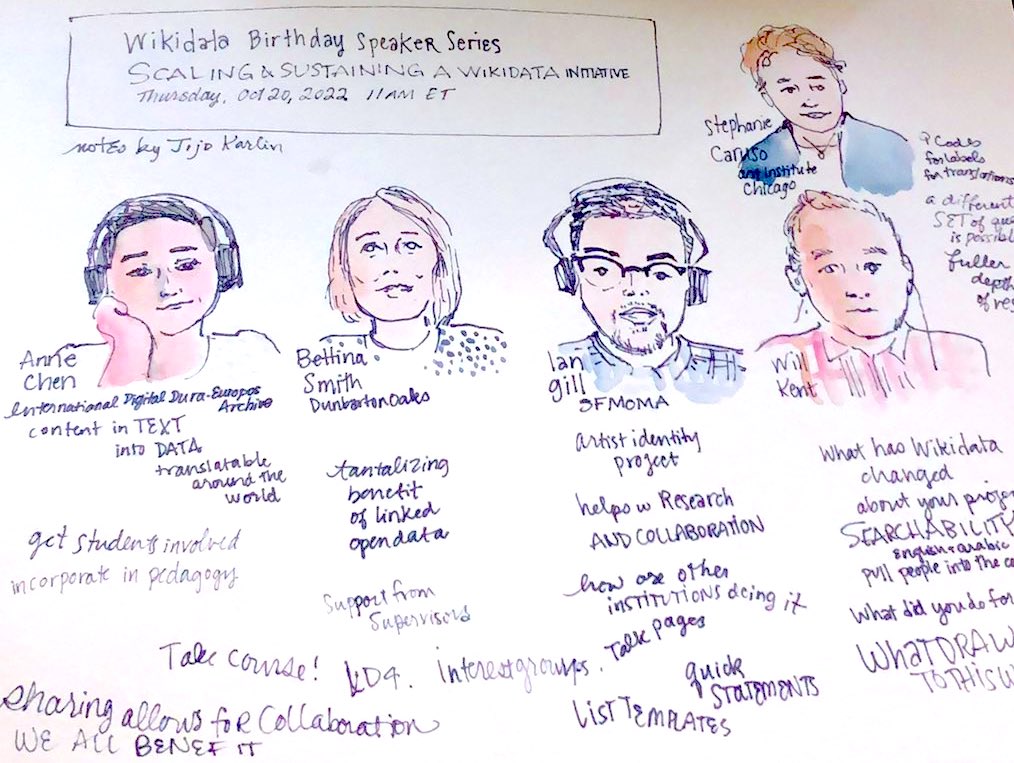 Wikidata Birthday Speaker Series
SCALING & SUSTAINING A WIKIDATA INITIATIVE
Thursday, Oct 20, 2022 11AM ET
notes by Jojo Karlin
Stephanie
Caruso
Art Institute
Chicago
Q Codes
for labels
for translations
a different
SET of
is possible
fuller
depth
of
Anne
Chen
International Digital Dura-Europos
Archive
content in TEXT
into DATA
translatable
around the
world
get students involved
incorporate in pedagogy
Bettina
Smith
Dunbarton Oaks
tantalizing
benefit
of linked
open data
Support from
Supervisors
Ian
gill
SFMOMA
artist identity
project
helps w Research
AND COLLABORATION
how are other
INSTITUTIONS doing it
Talk pages
Will
Kent
What has Wikidata
changed
about your
SEARCHABILITY
English + arabic
pull people into the
What did you do for
WHAT DRAW
TO THIS
Take course! LD4. interest groups.
quick
STATEMENTS
LIST TEMPLATES
Sharing allows for Collaboration
WE ALL BENEFIT